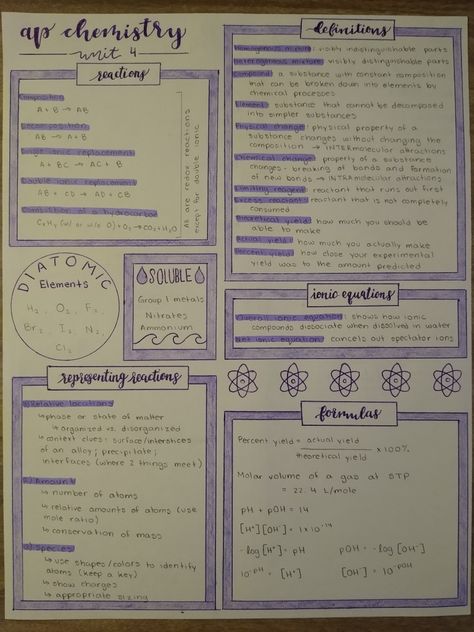 ap chemistry
unit 4
reactions
Composition
A + B → AB
Decomposition
AB → A + B
Single ionic replacement
A + BC → AC + B
Double ionic replacement
AB + CD → AD + CB
Combustion of a hydrocarbon
CxHy (w/ or w/o O) + O₂ → CO₂ + H₂O
All are redox reactions
except for double ionic
DIATOMIC
Elements
H₂, O₂, F₂,
Br₂, I₂, N₂,
Cl₂
SOLUBLE
Group 1 metals
Nitrates
Ammonium
representing reactions
1) Relative locations
↳ phase or state of matter
↳ organized vs. disorganized
↳ context clues: surface/interstices
of an alloy; precipitate;
interfaces (where 2 things meet)
2) Amount
↳ number of atoms
↳ relative amounts of atoms (use
mole ratio)
↳ conservation of mass
3) Species
↳ use shapes/colors to identify
atoms (keep a key)
↳ show charges
↳ appropriate sizing
definitions
Homogenous mixture: visibly indistinguishable parts
Heterogenous mixture: visibly distinguishable parts
Compound: a substance with constant composition
that can be broken down into elements by
chemical processes
Element: substance that cannot be decomposed
into simpler substances
Physical change: physical property of a
substance changes without changing the
composition → INTERmolecular attractions
Chemical change: property of a substance
changes - breaking of bonds and formation
of new bonds → INTRAmolecular attractions
Limiting reagent: reactant that runs out first
Excess reactant: reactant that is not completely
consumed
Theoretical yield: how much you should be
able to make
Actual yield: how much you actually make
Percent yield: how close your experimental
yield was to the amount predicted
ionic equations
Overall ionic equation: shows how ionic
compounds dissociate when dissolved in water
Net ionic equation: cancels out spectator ions
formulas
Percent yield = actual yield / theoretical yield × 100%
Molar volume of a gas at STP
= 22.4 L/mole
pH + pOH = 14
[H⁺][OH⁻] = 1×10⁻¹⁴
-log[H⁺] = pH pOH = -log[OH⁻]
10⁻ᵖᴴ = [H⁺] [OH⁻] = 10⁻ᵖᴼᴴ